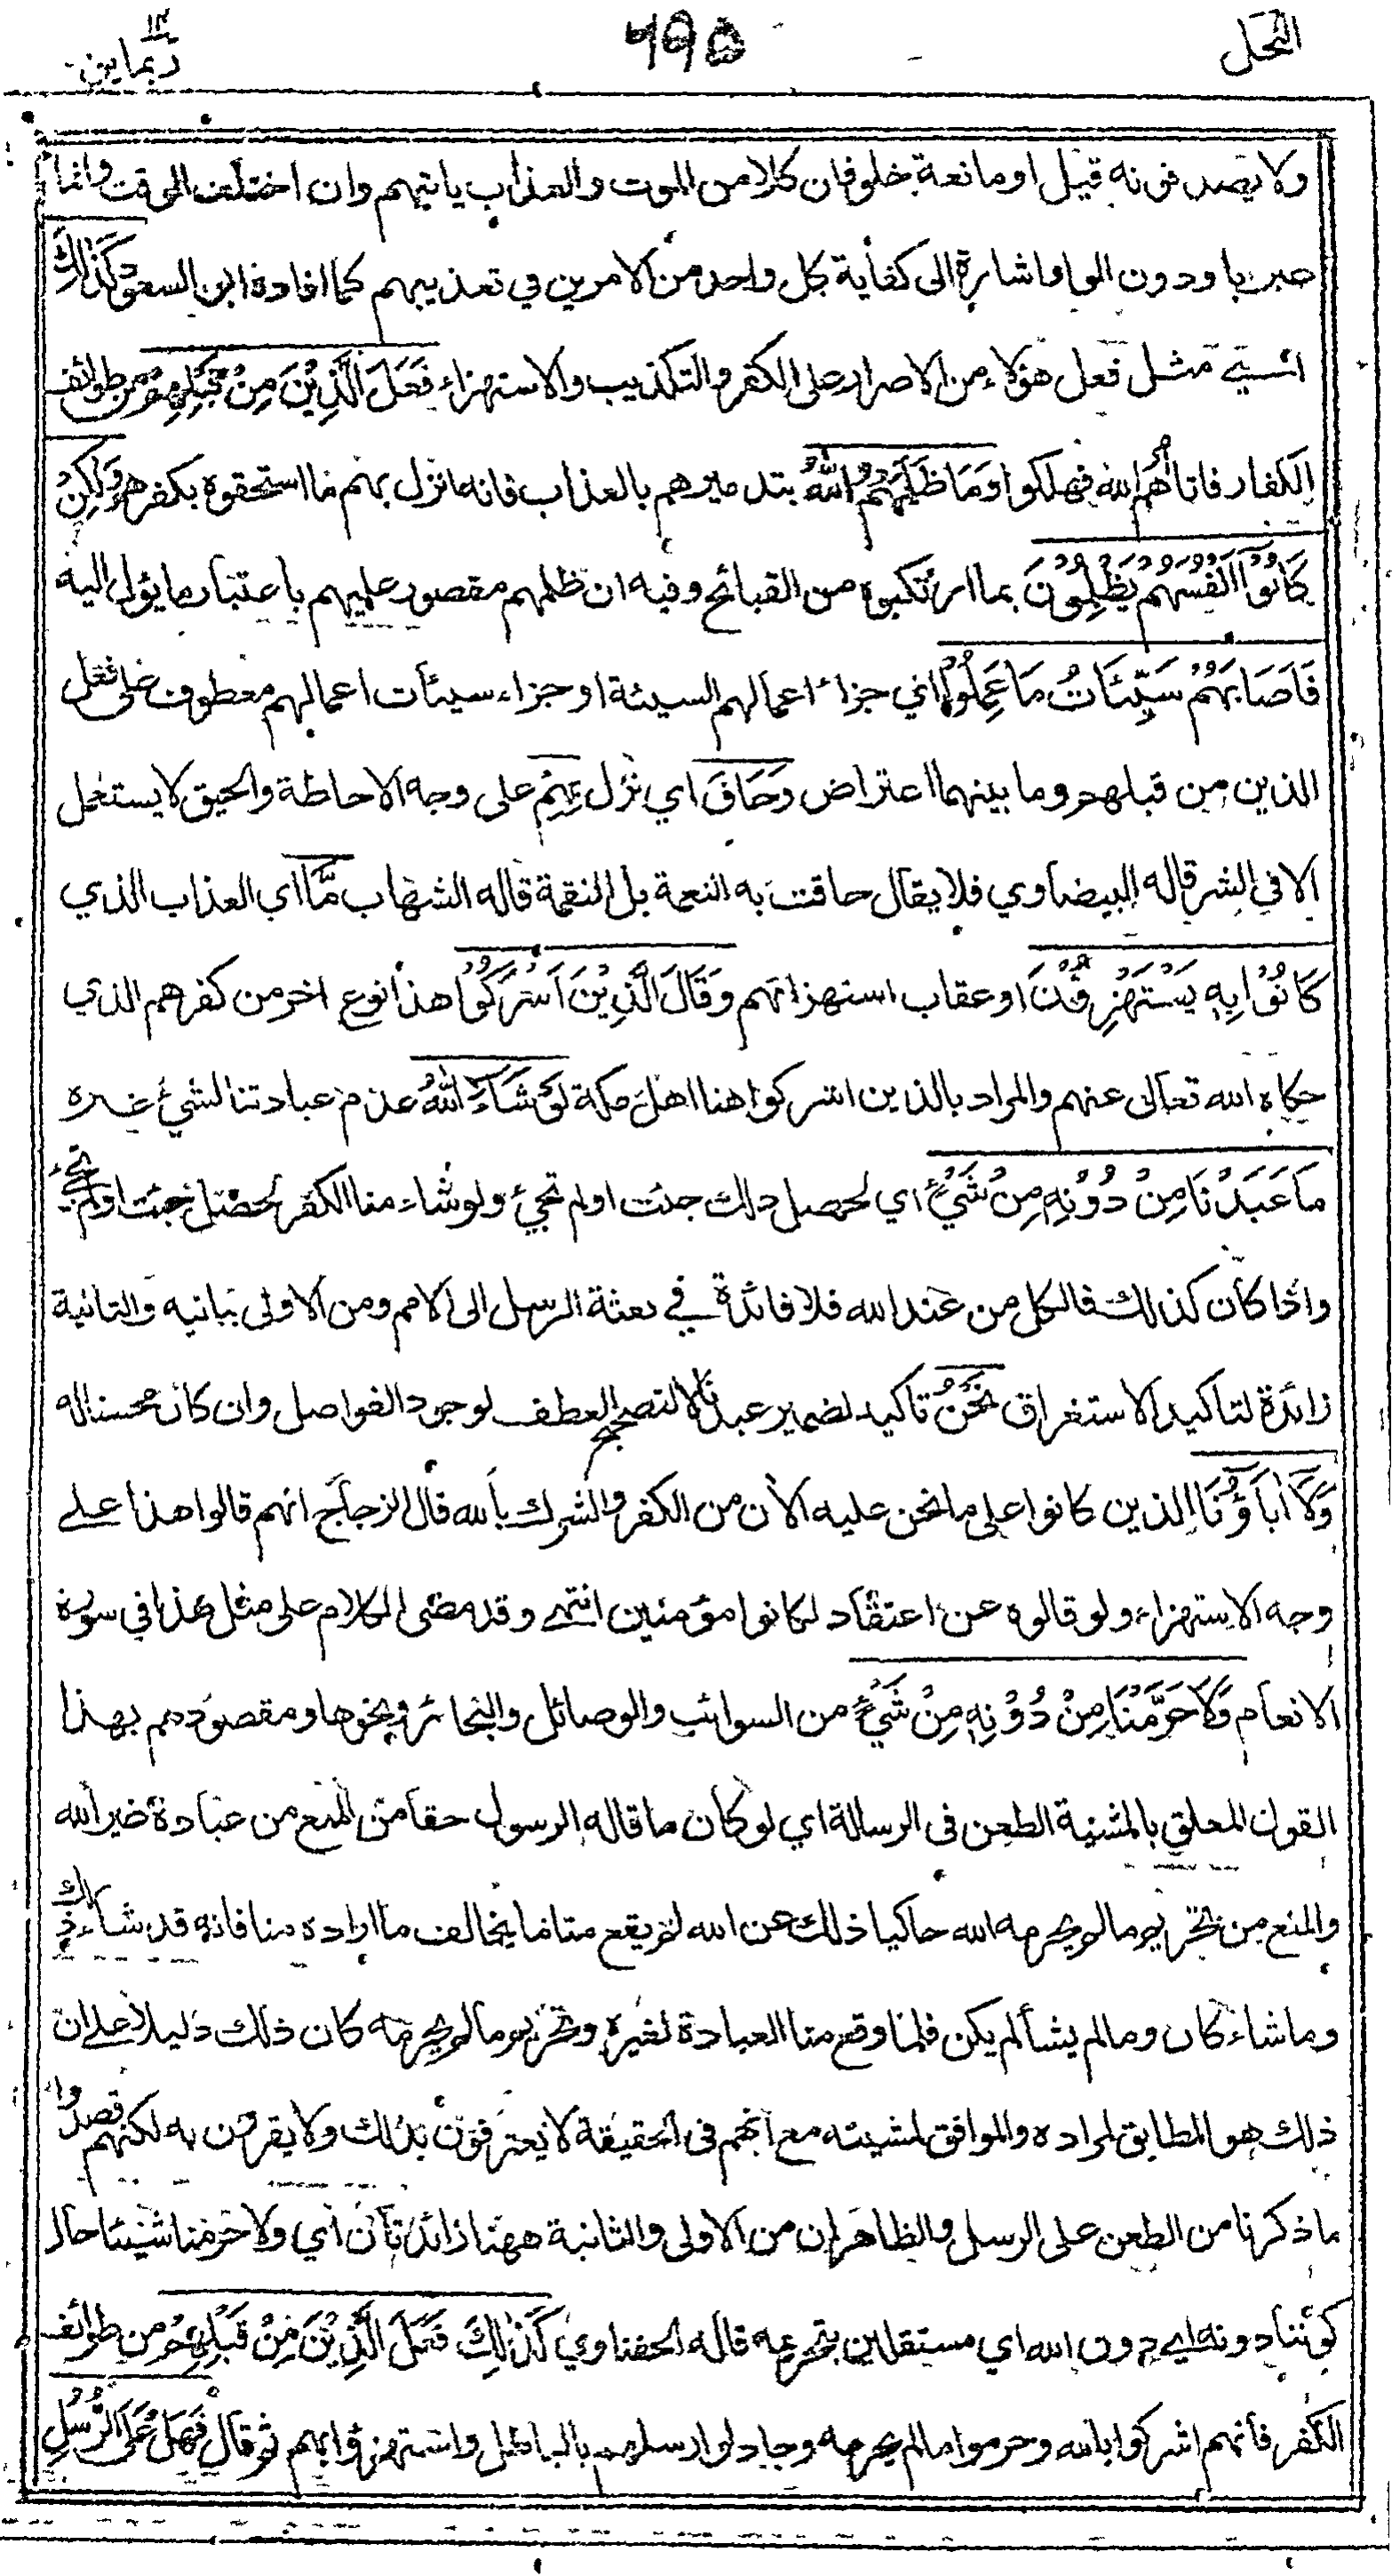 النحل
٦٩٥
ربما ١٤
ولا يصدقونه قيل او مانعة خلو فان كلا من الموت والعذاب ياتيهم وان اختلف الوقت وانما
عبر باو دون الواو اشارة الى كفاية كل واحد من الامرين في تعذيبهم كما افاده ابو السعود كَذٰلِكَ
اي مثل فعل هؤلاء من الاصرار على الكفر والتكذيب والاستهزاء فَعَلَ الَّذِيْنَ مِنْ قَبْلِهِمْ من طوائف
الكفار فاتاهم امر الله فهلكوا وَمَا ظَلَمَهُمُ اللهُ بتدميرهم بالعذاب فانه انزل بهم ما استحقوه بكفرهم وَلٰكِنْ
كَانُوْا اَنْفُسَهُمْ يَظْلِمُوْنَ بما ارتكبوه من القبائح وفيه ان ظلمهم مقصور عليهم باعتبار ما يؤل اليه
فَاَصَابَهُمْ سَيِّئَاتُ مَا عَمِلُوْا اي جزاء اعمالهم السيئة او جزاء سيئات اعمالهم معطوف على فعل
الذين من قبلهم وما بينهما اعتراض وَحَاقَ اي نزل بِهِمْ على وجه الاحاطة والحيق لا يستعمل
الا في الشر قاله البيضاوي فلا يقال حاقت به النعمة بل النقمة قاله الشهاب مَّا اي العذاب الذي
كَانُوْا بِهٖ يَسْتَهْزِؤُنَ او عقاب استهزائهم وَقَالَ الَّذِيْنَ اَشْرَكُوْا هذا نوع اخر من كفرهم الذي
حكاه الله تعالى عنهم والمراد بالذين اشركوا هنا اهل مكة لَوْ شَآءَ اللهُ عدم عبادتنا لشيء غيره
مَا عَبَدْنَا مِنْ دُوْنِهٖ مِنْ شَيْءٍ اي لحصل ذلك جئت اولم تجئ ولو شاء منا الكفر لحصل جئت اولم تجئ
واذا كان كذلك فالكل من عند الله فلا فائدة في بعثة الرسل الى الامم ومن الاولى بيانيه والثانية
زائدة لتاكيد الاستغراق نَحْنُ تاكيد لضمير عبدنا لا لتصحيح العطف لوجود الفواصل وان كان محسنا له
وَلَآ اٰبَآؤُنَا الذين كانوا على ما نحن عليه الان من الكفر والشرك بالله قال الزجاج انهم قالوا هذا على
وجه الاستهزاء ولو قالوه عن اعتقاد لكانوا مؤمنين انتهى وقد مضى الكلام على مثل هذا في سورة
الانعام وَلَا حَرَّمْنَا مِنْ دُوْنِهٖ مِنْ شَيْءٍ من السوائب والوصائل والبحائر ونحوها ومقصودهم بهذا
القول المعلق بالمشية الطعن في الرسالة اي لو كان ما قاله الرسول حقا من المنع من عبادة غير الله
والمنع من تحريم ما لم يحرمه الله حاكيا ذلك عن الله لم يقع منا ما يخالف ما اراده منا فانه قد شاء ذلك
وما شاء كان وما لم يشأ لم يكن فلما وقع منا العبادة لغيره وتحريم ما لم يحرمه كان ذلك دليلا على ان
ذلك هو المطابق لمراده والموافق لمشيته مع انهم في الحقيقة لا يعترفون بذلك ولا يقرون به لكنهم قصدوا
ما ذكرنا من الطعن على الرسل والظاهر ان من الاولى والثانية ههنا زائدتان اي ولا حرمنا شيئا حال
كوننا دونه اي دون الله اي مستقلين بتحريمه قاله الحفناوي كَذٰلِكَ فَعَلَ الَّذِيْنَ مِنْ قَبْلِهِمْ من طوائف
الكفر فانهم اشركوا بالله وحرموا ما لم يحرمه وجادلوا رسلهم بالباطل واستهزؤا بهم ثم قال فَهَلْ عَلَى الرُّسُلِ